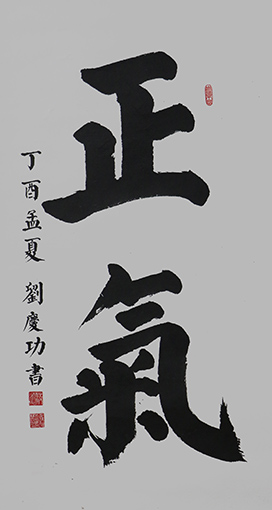 正氣
丁酉孟夏 劉慶功書